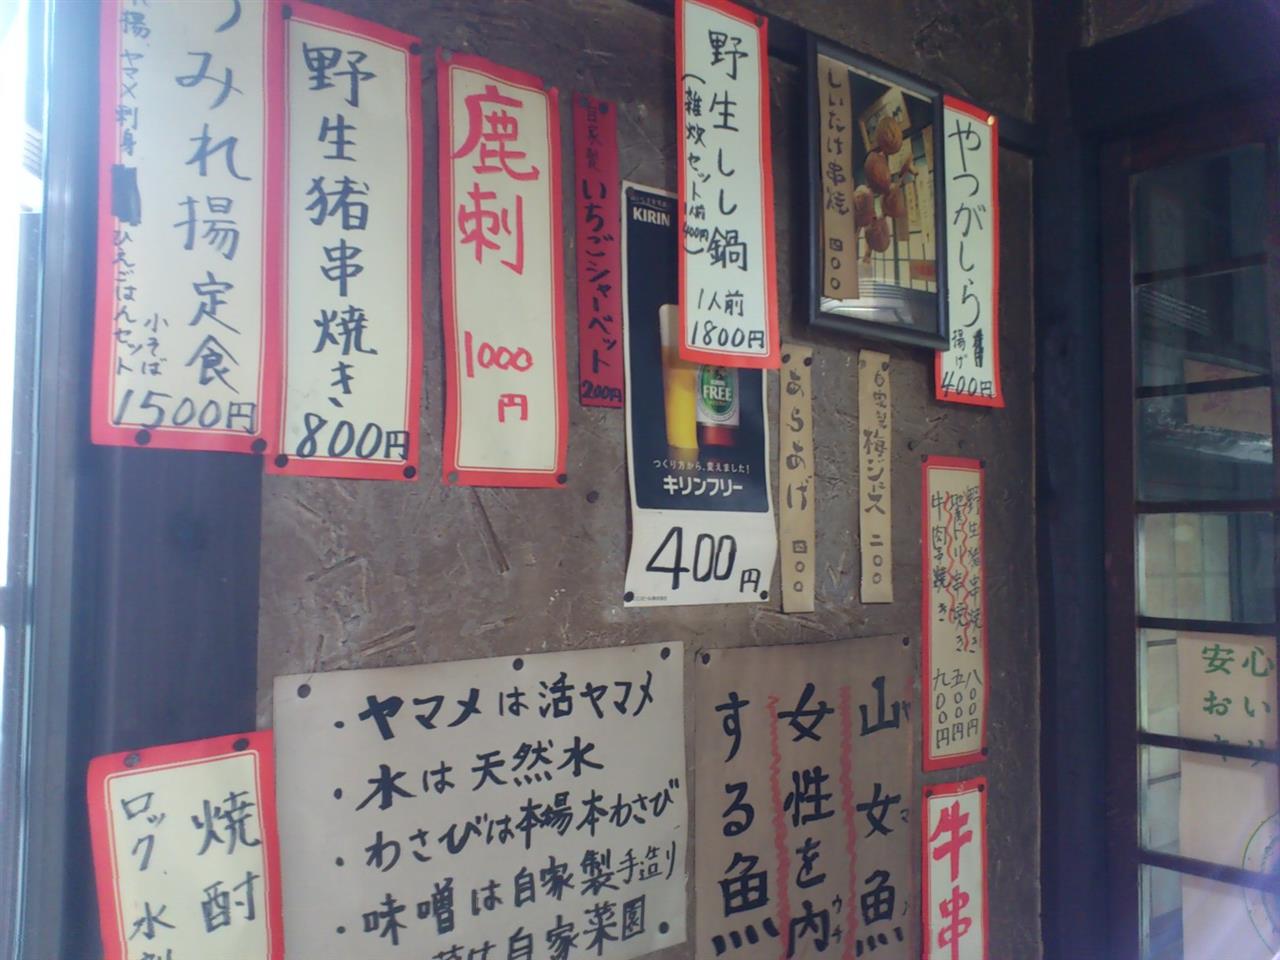 みれ揚定食
ヤマメ刺身
ひえごはんセット
小そば
1500円
野生猪串焼き
800円
鹿刺
1000
円
自家製
いちごシャーベット
200円
KIRIN
FREE
つくり方から、変えました!
キリンフリー
400円
野生しし鍋
(雑炊セット1人前400円)
1人前
1800円
しいたけ串焼
四〇〇
やつがしら
揚げ
400円
あらあげ
四〇〇
自家製梅ジュース
二〇〇
野生猪串焼き 八〇〇円
地鶏トリ串焼き 五〇〇円
牛肉串焼き 九〇〇円
・ヤマメは活ヤマメ
・水は天然水
・わさびは本場本わさび
・味噌は自家製手造り
菜は自家菜園
山女魚
女性を内
する魚
焼酎
ロック
水
牛串
安心
おい